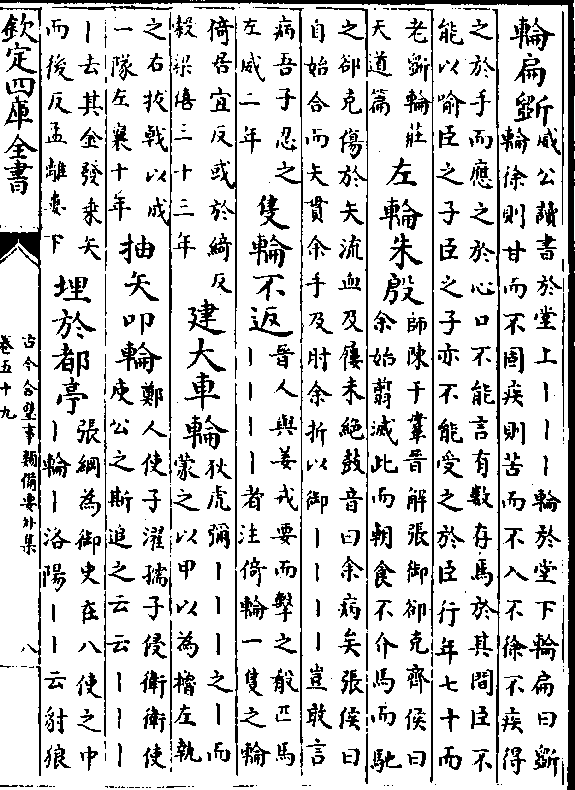 輪扁斵
威公讀書於堂上丨丨丨輪於堂下輪扁曰斵
輪徐則甘而不固疾則苦而不入不徐不疾得
之於手而應之於心口不能言有數存焉於其間臣不
能以喻臣之子臣之子亦不能受之於臣行年七十而
老斵輪莊
天道篇
左輪朱殷
師陳于鞌晉解張御郤克齊侯曰
余始翦滅此而朝食不介馬而馳
之郤克傷於矢流血及屨未絕鼓音曰余病矣張侯曰
自始合而矢貫余手及肘余折以御丨丨丨丨豈敢言
病吾子忍之
左成二年
隻輪不返
晉人與姜戎要而擊之殽匹馬
丨丨丨丨者注倚輪一隻之輪
倚居宜反或於綺反
穀梁僖三十三年
建大車輪
狄虎彌丨丨丨之丨而
蒙之以甲以為櫓左執
之右拔戟以成
一隊左襄十年
抽矢叩輪
鄭人使子濯孺子侵衛衛使
庾公之斯追之云云丨丨丨
丨去其金發乗矢
而後反孟離婁下
埋於都亭
張綱為御史在八使之中
丨輪丨洛陽丨丨云豺狼
欽定四庫全書
古今合璧事類備要外集
卷五十九
八